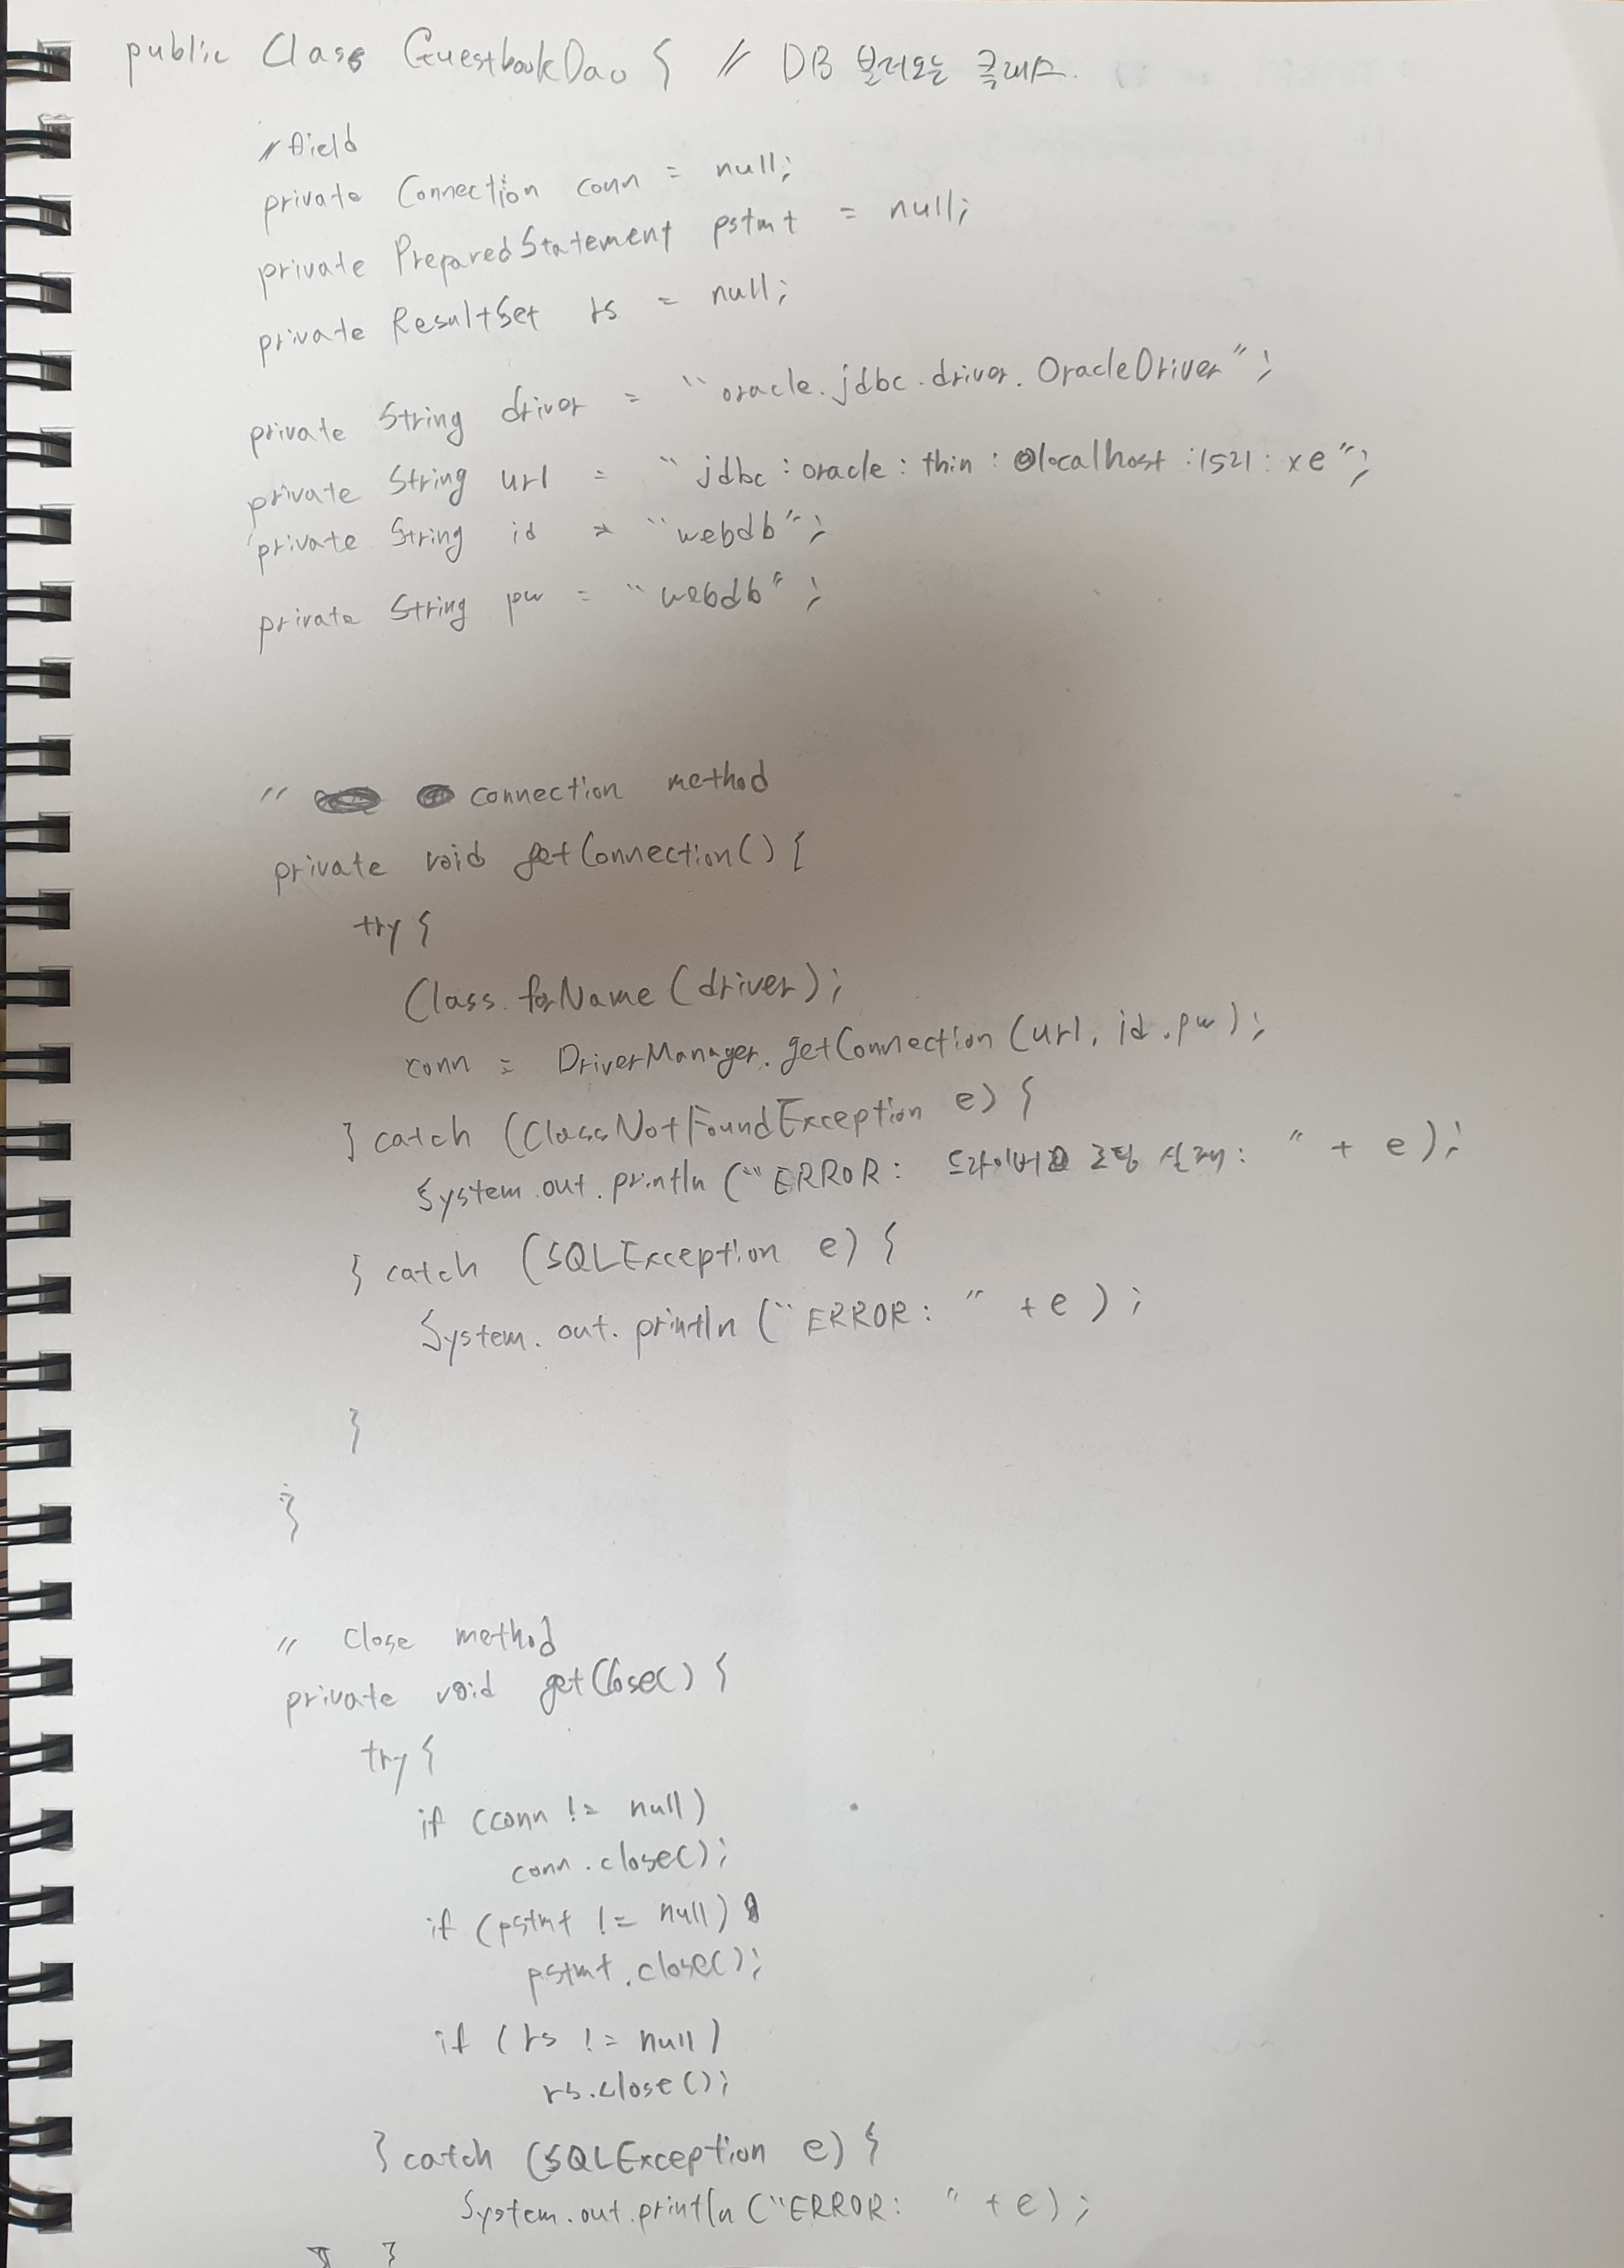 public Class GuestbookDao { // DB 불러오는 클래스.
// field
private Connection conn = null;
private PreparedStatement pstmt = null;
private ResultSet rs = null;
private String driver = "oracle.jdbc.driver.OracleDriver";
private String url = "jdbc:oracle:thin:@localhost:1521:xe";
private String id = "webdb";
private String pw = "webdb";
// connection method
private void getConnection() {
try {
Class.forName(driver);
conn = DriverManager.getConnection(url, id, pw);
} catch (ClassNotFoundException e) {
System.out.println("ERROR: 드라이버 로딩 실패: " + e);
} catch (SQLException e) {
System.out.println("ERROR: " + e);
}
}
// Close method
private void getClose() {
try {
if (conn != null)
conn.close();
if (pstmt != null)
pstmt.close();
if (rs != null)
rs.close();
} catch (SQLException e) {
System.out.println("ERROR: " + e);
} }